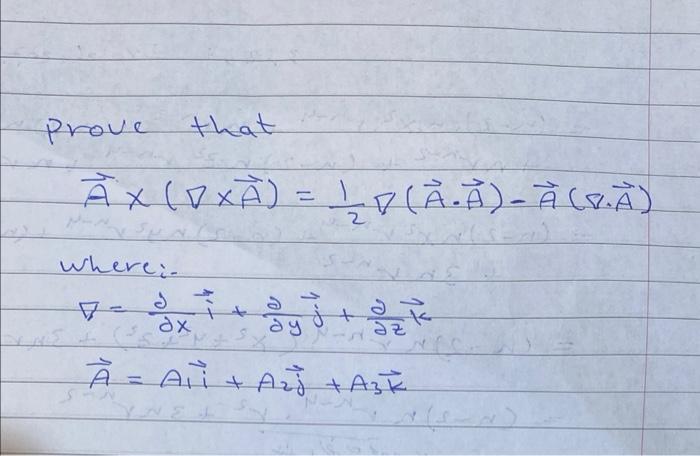 prove that
A⃗ × (∇ × A⃗) = 1/2 ∇(A⃗ . A⃗) - A⃗ (∇ . A⃗)
where:-
∇ = ∂/∂x i⃗ + ∂/∂y j⃗ + ∂/∂z k⃗
A⃗ = A₁i⃗ + A₂j⃗ + A₃k⃗